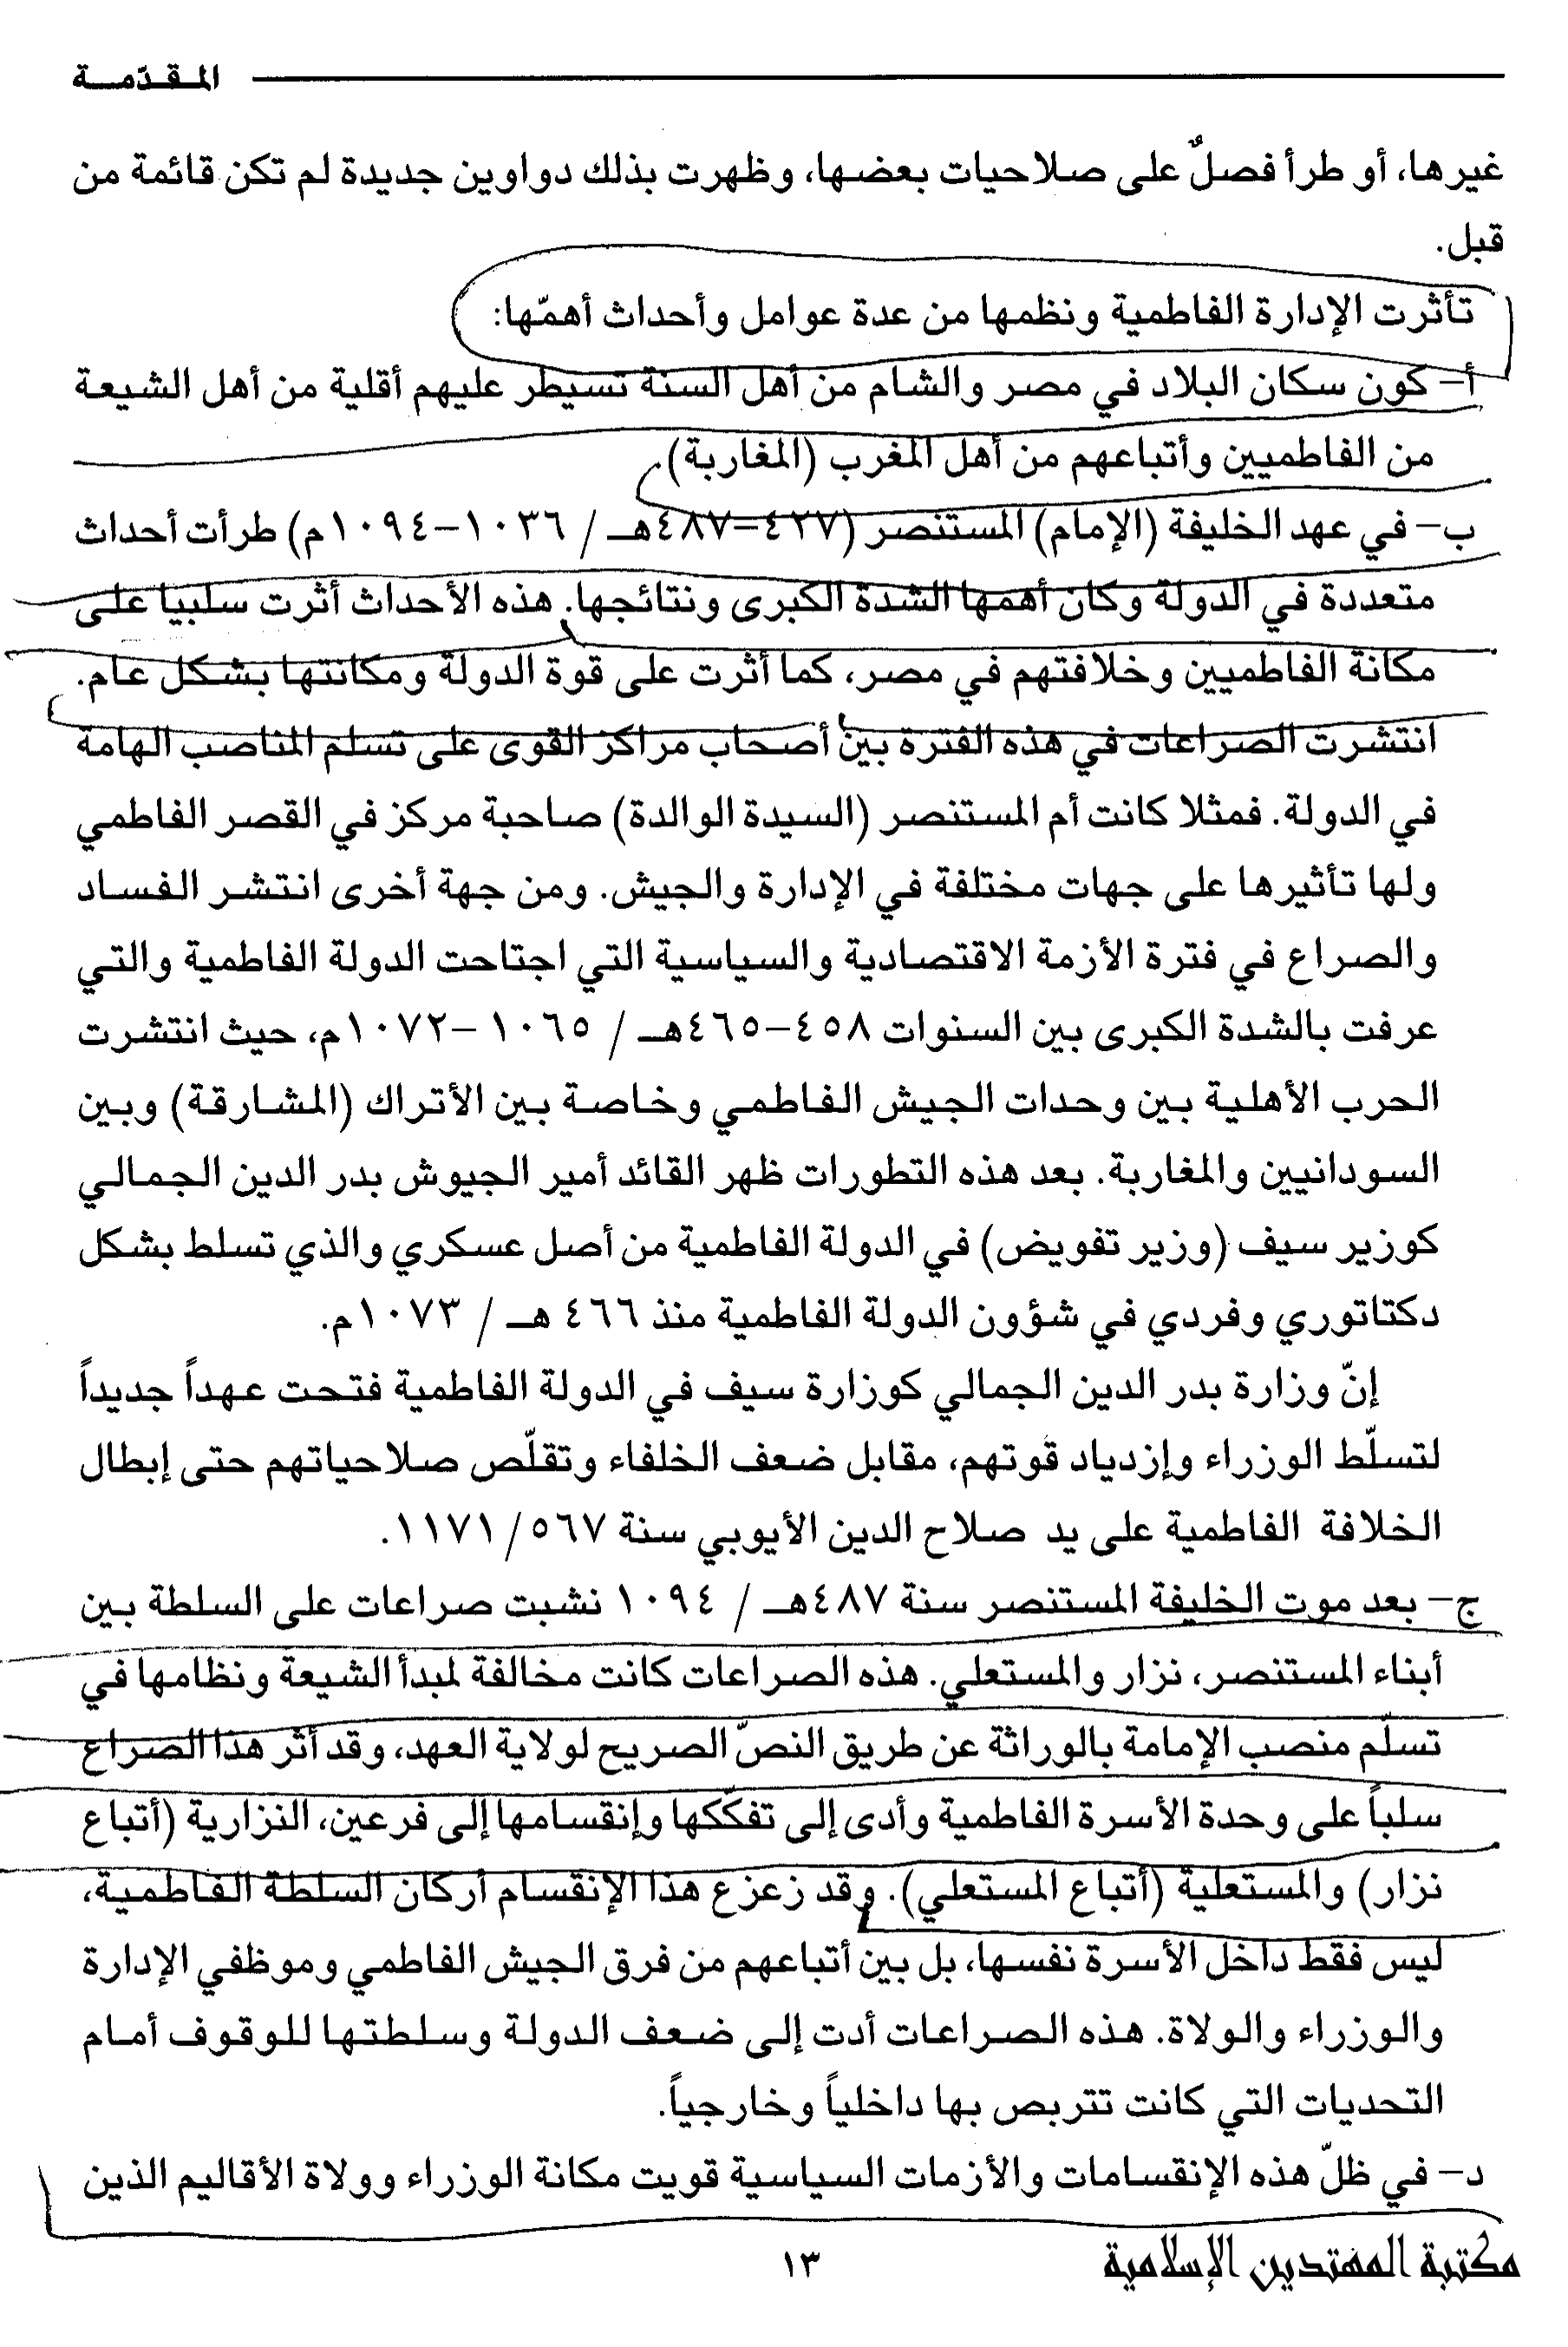 المـقـدّمــة
غيرها، أو طرأ فصلٌ على صلاحيات بعضها، وظهرت بذلك دواوين جديدة لم تكن قائمة من
قبل.
تأثرت الإدارة الفاطمية ونظمها من عدة عوامل وأحداث أهمّها:
أ– كون سكان البلاد في مصر والشام من أهل السنة تسيطر عليهم أقلية من أهل الشيعة
من الفاطميين وأتباعهم من أهل المغرب (المغاربة).
ب– في عهد الخليفة (الإمام) المستنصر (٤٢٧–٤٨٧هـ / ١٠٣٦–١٠٩٤م) طرأت أحداث
متعددة في الدولة وكان أهمها الشدة الكبرى ونتائجها. هذه الأحداث أثرت سلبيا على
مكانة الفاطميين وخلافتهم في مصر، كما أثرت على قوة الدولة ومكانتها بشكل عام.
انتشرت الصراعات في هذه الفترة بين أصحاب مراكز القوى على تسلم المناصب الهامة
في الدولة. فمثلا كانت أم المستنصر (السيدة الوالدة) صاحبة مركز في القصر الفاطمي
ولها تأثيرها على جهات مختلفة في الإدارة والجيش. ومن جهة أخرى انتشر الفساد
والصراع في فترة الأزمة الاقتصادية والسياسية التي اجتاحت الدولة الفاطمية والتي
عرفت بالشدة الكبرى بين السنوات ٤٥٨–٤٦٥هـ / ١٠٦٥–١٠٧٢م، حيث انتشرت
الحرب الأهلية بين وحدات الجيش الفاطمي وخاصة بين الأتراك (المشارقة) وبين
السودانيين والمغاربة. بعد هذه التطورات ظهر القائد أمير الجيوش بدر الدين الجمالي
كوزير سيف (وزير تفويض) في الدولة الفاطمية من أصل عسكري والذي تسلط بشكل
دكتاتوري وفردي في شؤون الدولة الفاطمية منذ ٤٦٦ هـ / ١٠٧٣م.
إنّ وزارة بدر الدين الجمالي كوزارة سيف في الدولة الفاطمية فتحت عهداً جديداً
لتسلّط الوزراء وإزدياد قوتهم، مقابل ضعف الخلفاء وتقلّص صلاحياتهم حتى إبطال
الخلافة الفاطمية على يد صلاح الدين الأيوبي سنة ٥٦٧/ ١١٧١.
ج– بعد موت الخليفة المستنصر سنة ٤٨٧هـ / ١٠٩٤ نشبت صراعات على السلطة بين
أبناء المستنصر، نزار والمستعلي. هذه الصراعات كانت مخالفة لمبدأ الشيعة ونظامها في
تسلّم منصب الإمامة بالوراثة عن طريق النصّ الصريح لولاية العهد، وقد أثر هذا الصراع
سلباً على وحدة الأسرة الفاطمية وأدى إلى تفكّكها وإنقسامها إلى فرعين، النزارية (أتباع
نزار) والمستعلية (أتباع المستعلي). وقد زعزع هذا الإنقسام أركان السلطة الفاطمية،
ليس فقط داخل الأسرة نفسها، بل بين أتباعهم من فرق الجيش الفاطمي وموظفي الإدارة
والوزراء والولاة. هذه الصراعات أدت إلى ضعف الدولة وسلطتها للوقوف أمام
التحديات التي كانت تتربص بها داخلياً وخارجياً.
د– في ظلّ هذه الإنقسامات والأزمات السياسية قويت مكانة الوزراء وولاة الأقاليم الذين
١٣
مكتبة المهتدين الإسلامية